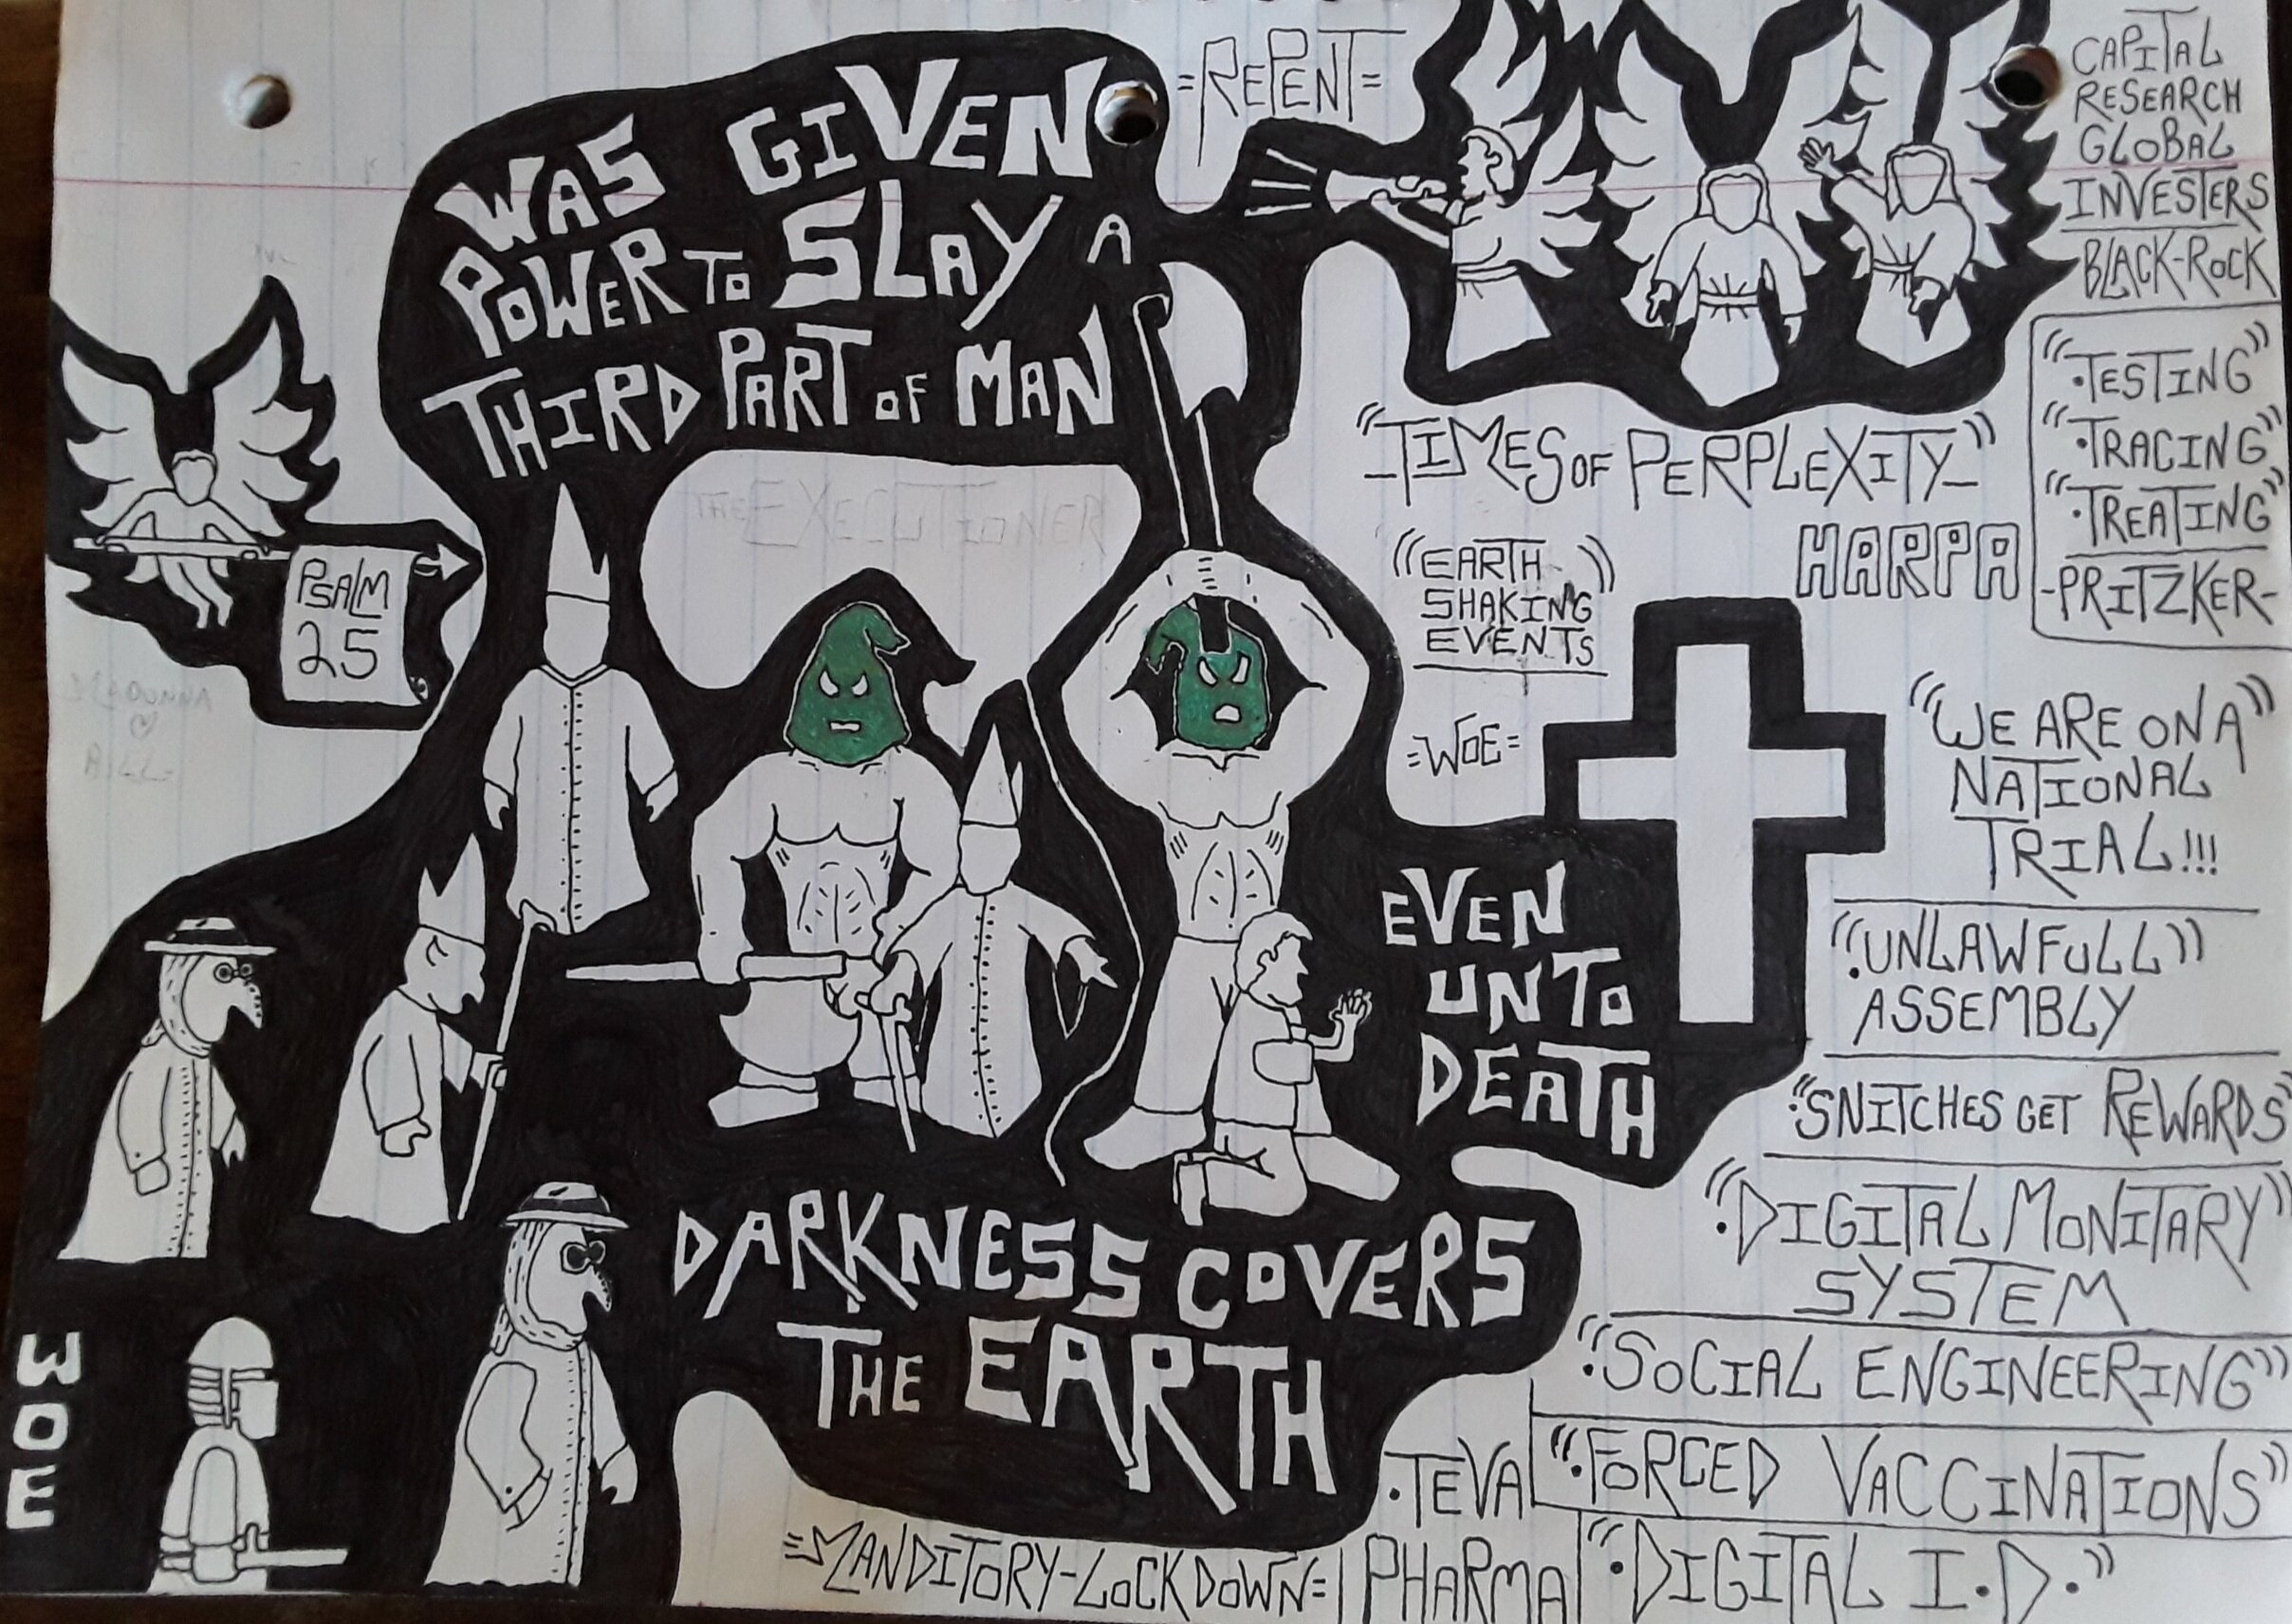 =REPENT=
WAS GIVEN
POWER TO SLAY A
THIRD PART OF MAN
THE EXECUTIONER
PSALM
25
CAPITAL
RESEARCH
GLOBAL
INVESTERS
BLACK-ROCK
"TESTING"
"TRACING"
"TREATING"
-PRITZKER-
"TIMES OF PERPLEXITY"
HARPA
((EARTH
SHAKING
EVENTS))
=WOE=
"WE ARE ON A"
NATIONAL
TRIAL!!!
"UNLAWFULL"
ASSEMBLY
EVEN
UNTO
DEATH
"SNITCHES GET REWARDS"
"DIGITAL MONITARY"
SYSTEM
DARKNESS COVERS
THE EARTH
"SOCIAL ENGINEERING"
WOE
"FORCED VACCINATIONS"
•TEVA
PHARMA
"•DIGITAL I.D."
=MANDITORY-LOCKDOWN=